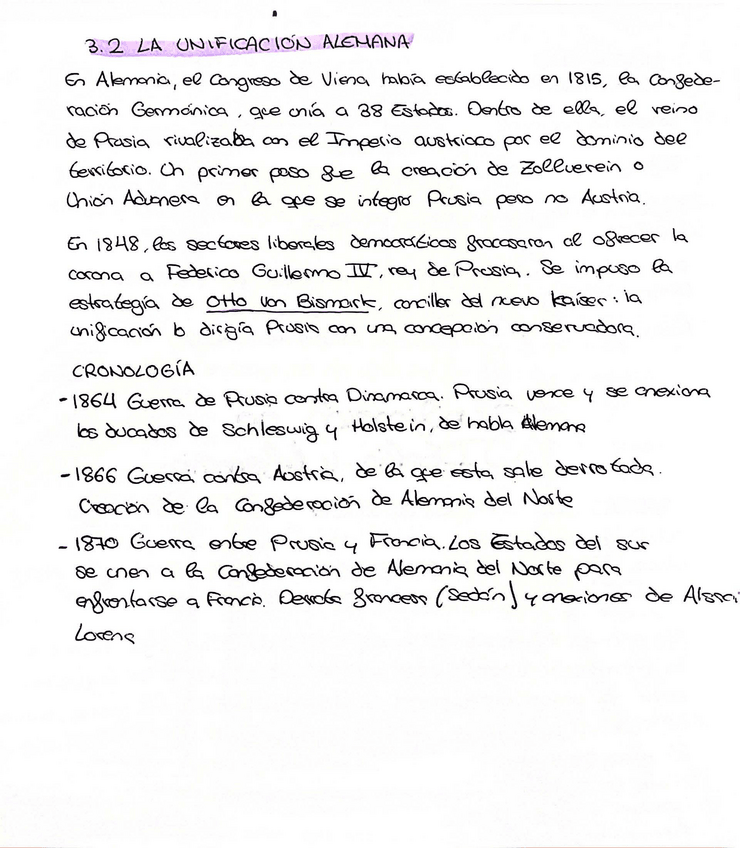 3.2 LA UNIFICACIÓN ALEMANA
En Alemania, el Congreso de Viena había establecido en 1815, la Confede-
ración Germánica, que unía a 38 Estados. Dentro de ella, el reino
de Prusia rivalizaba con el Imperio austriaco por el dominio del
territorio. Un primer paso fue la creación de Zollverein o
Unión Aduanera en la que se integro Prusia pero no Austria.
En 1848, los sectores liberales democráticos fracasaron al ofrecer la
corona a Federico Guillermo IV, rey de Prusia. Se impuso la
estrategia de Otto von Bismark, canciller del nuevo kaíser: la
unificación la dirigía Prusia con una concepción conservadora.
CRONOLOGÍA
- 1864 Guerra de Prusia contra Dinamarca. Prusia vence y se anexiona
los ducados de Schleswig y Holstein, de habla Alemana
- 1866 Guerra contra Austria, de la que ésta sale derrotada.
Creación de la Confederación de Alemania del Norte
- 1870 Guerra entre Prusia y Francia. Los Estados del sur
se unen a la Confederación de Alemania del Norte para
enfrentarse a Francia. Derrota francesa (Sedán) y anexiones de Alsaci
Lorena